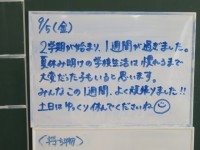 9/5(金)
2学期が始まり、1週間が過ぎました。
夏休み明けの学校生活は慣れるまで
大変だった子もいると思います。
みんなこの1週間、よく頑張りました!!
土日はゆっくり休んでくださいね
<持ち物>